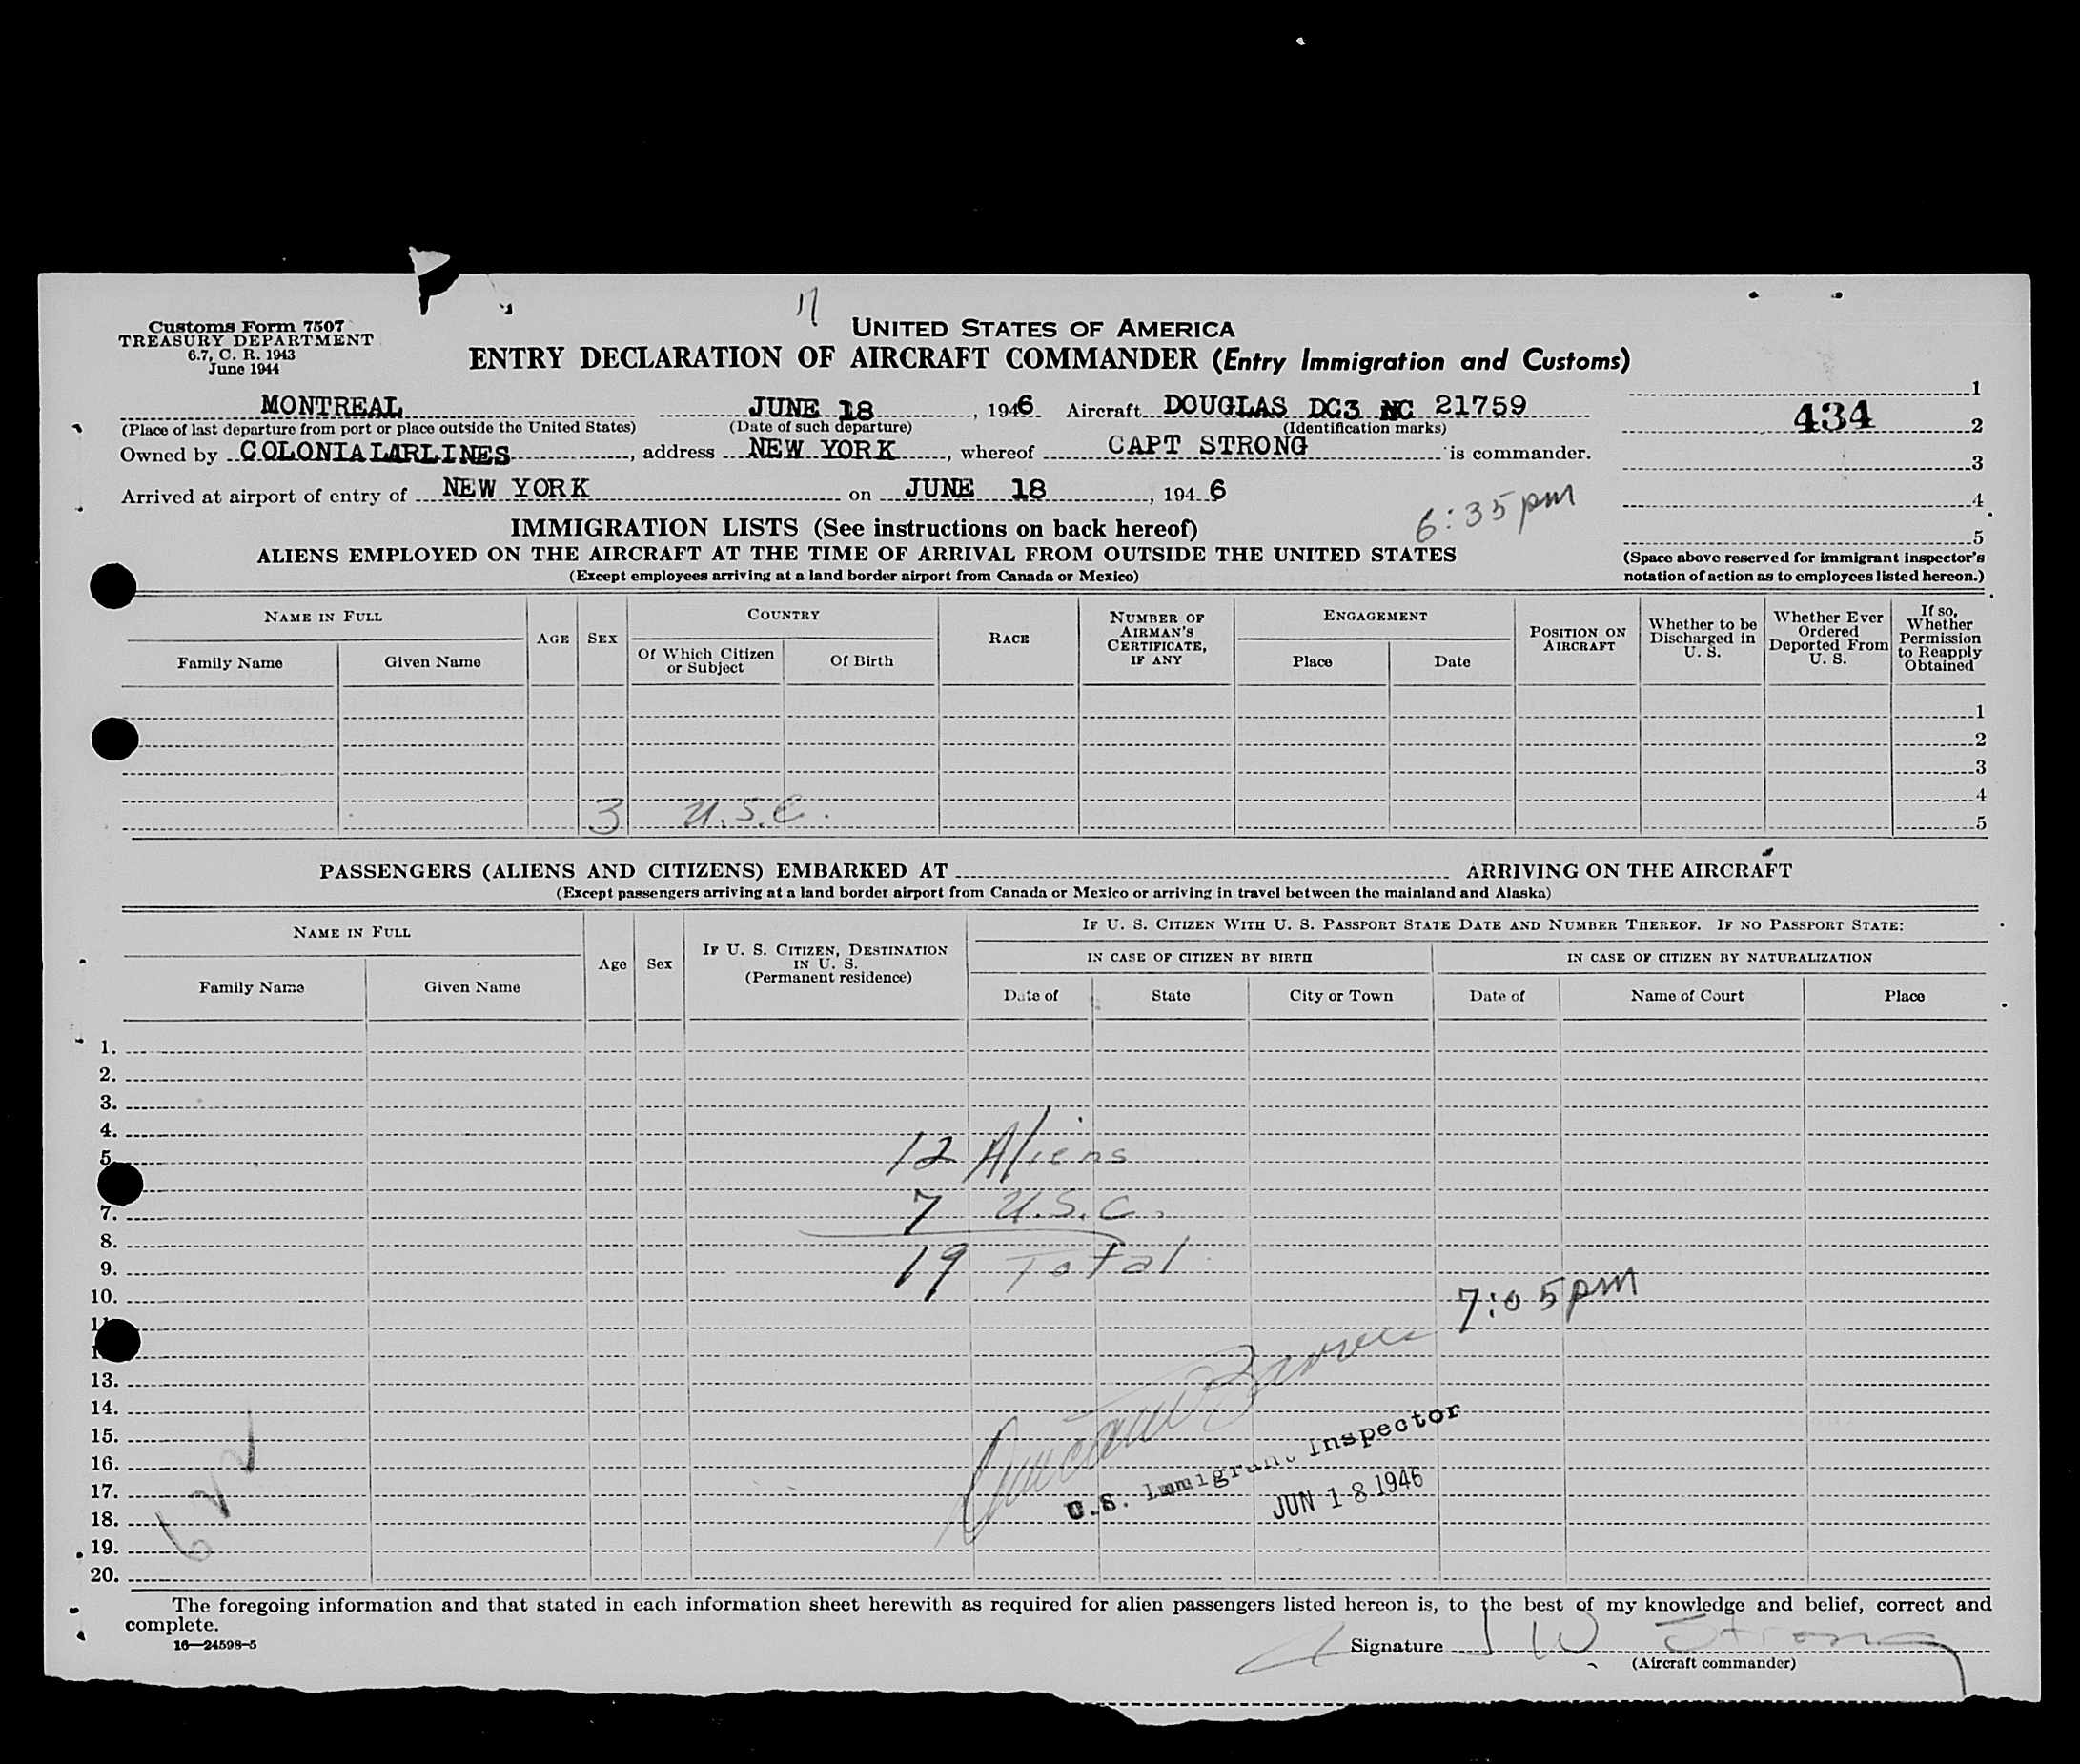 17
Customs Form 7507
TREASURY DEPARTMENT
6.7, C. R. 1943
June 1944
UNITED STATES OF AMERICA
ENTRY DECLARATION OF AIRCRAFT COMMANDER (Entry Immigration and Customs)
MONTREAL JUNE 18, 1946 Aircraft DOUGLAS DC3 NC 21759
(Place of last departure from port or place outside the United States) (Date of such departure) (Identification marks)
Owned by COLONIALARLINES, address NEW YORK, whereof CAPT STRONG is commander.
Arrived at airport of entry of NEW YORK on JUNE 18, 1946
6:35 pm
1
434 2
3
4
5
(Space above reserved for immigrant inspector's
notation of action as to employees listed hereon.)
IMMIGRATION LISTS (See instructions on back hereof)
ALIENS EMPLOYED ON THE AIRCRAFT AT THE TIME OF ARRIVAL FROM OUTSIDE THE UNITED STATES
(Except employees arriving at a land border airport from Canada or Mexico)
NAME IN FULL
Family Name Given Name
AGE
SEX
COUNTRY
Of Which Citizen or Subject
Of Birth
RACE
NUMBER OF AIRMAN'S CERTIFICATE, IF ANY
ENGAGEMENT
Place Date
POSITION ON AIRCRAFT
Whether to be Discharged in U. S.
Whether Ever Ordered Deported From U. S.
If so, Whether Permission to Reapply Obtained
1
2
3
4
3 U.S.C. 5
PASSENGERS (ALIENS AND CITIZENS) EMBARKED AT ARRIVING ON THE AIRCRAFT
(Except passengers arriving at a land border airport from Canada or Mexico or arriving in travel between the mainland and Alaska)
NAME IN FULL
Family Name Given Name
Age
Sex
IF U. S. CITIZEN, DESTINATION IN U. S.
(Permanent residence)
IF U. S. CITIZEN WITH U. S. PASSPORT STATE DATE AND NUMBER THEREOF. IF NO PASSPORT STATE:
IN CASE OF CITIZEN BY BIRTH
Date of State City or Town
IN CASE OF CITIZEN BY NATURALIZATION
Date of Name of Court Place
1.
2.
3.
4.
5. 12 Aliens
7. 7 U.S.C.
8.
9. 19 Total
10. 7:05 pm
13.
14.
15.
16.
17.
18.
19.
20.
U.S. Immigrant Inspector
JUN 18 1946
The foregoing information and that stated in each information sheet herewith as required for alien passengers listed hereon is, to the best of my knowledge and belief, correct and
complete.
16—24598-5
Signature J W Strong
(Aircraft commander)